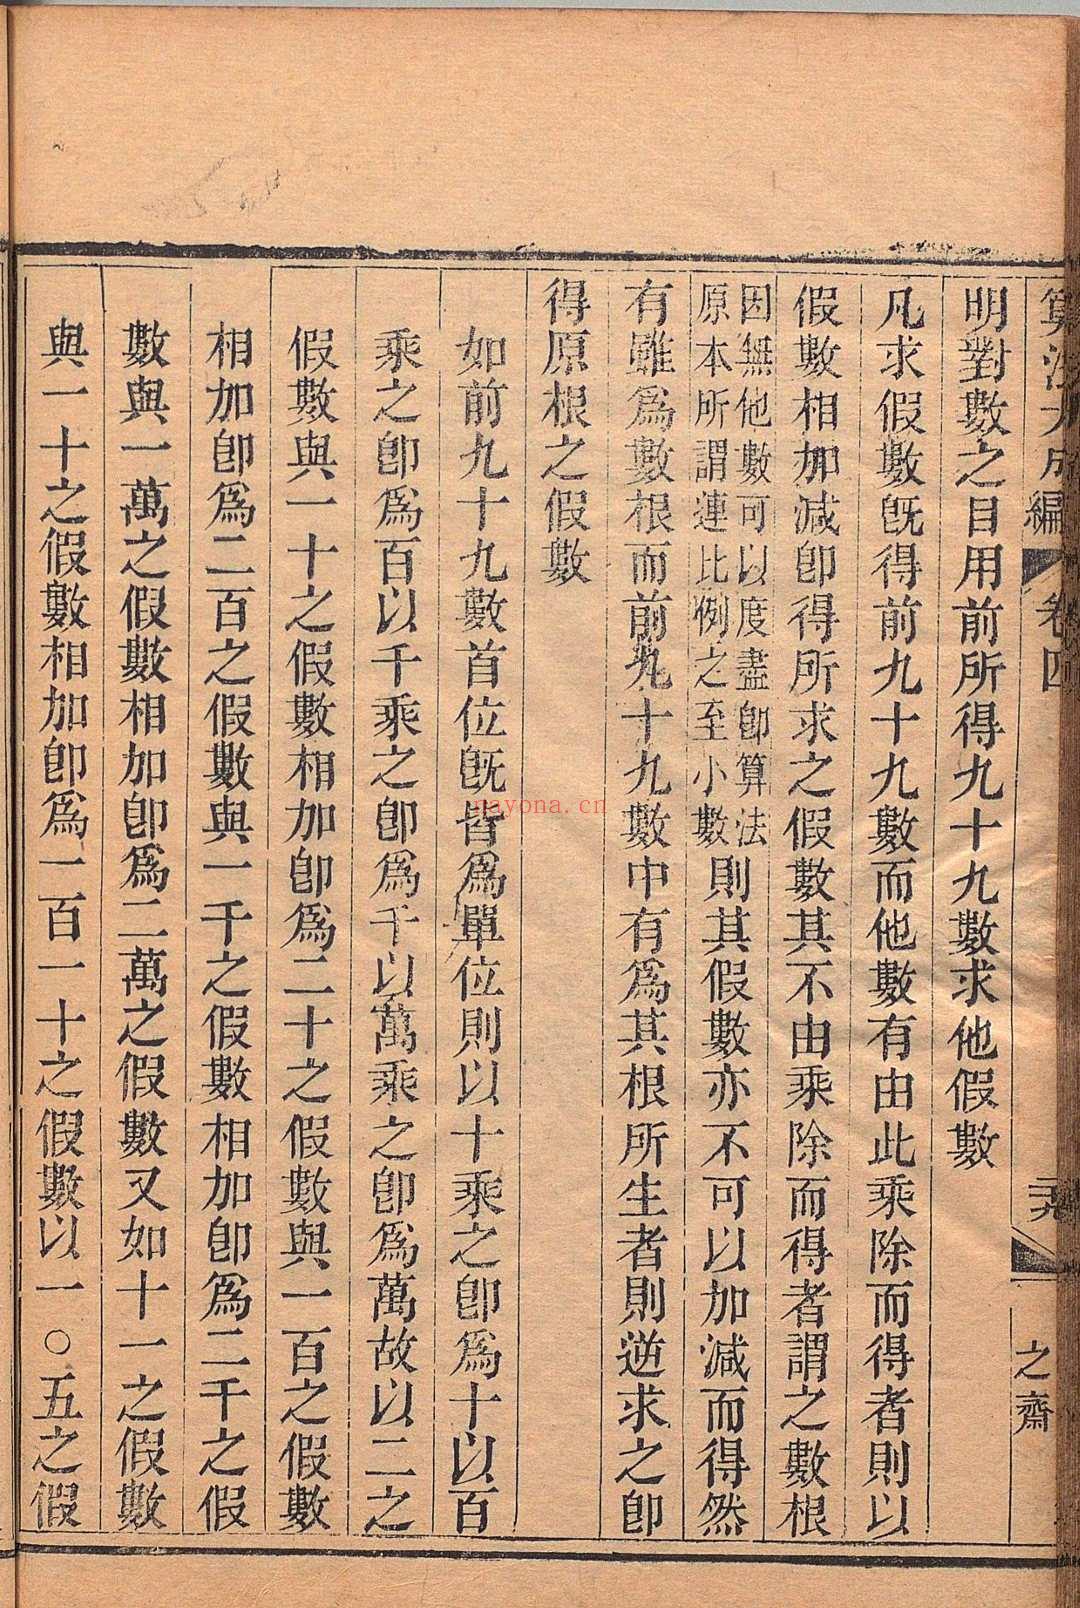 算法大成編 卷四 之齋
明對數之目用前所得九十九數求他假數
凡求假數旣得前九十九數而他數有由此乘除而得者則以
假數相加減卽得所求之假數其不由乘除而得者謂之數根
因無他數可以度盡卽算法
原本所謂連比例之至小數
則其假數亦不可以加減而得然
有雖爲數根而前九十九數中有爲其根所生者則逆求之卽
得原根之假數
如前九十九數首位旣皆爲單位則以十乘之卽爲十以百
乘之卽爲百以千乘之卽爲千以萬乘之卽爲萬故以二之
假數與一十之假數相加卽爲二十之假數與一百之假數
相加卽爲二百之假數與一千之假數相加卽爲二千之假
數與一萬之假數相加卽爲二萬之假數又如十一之假數
與一十之假數相加卽爲一百一十之假數以一○五之假
nayona.cn